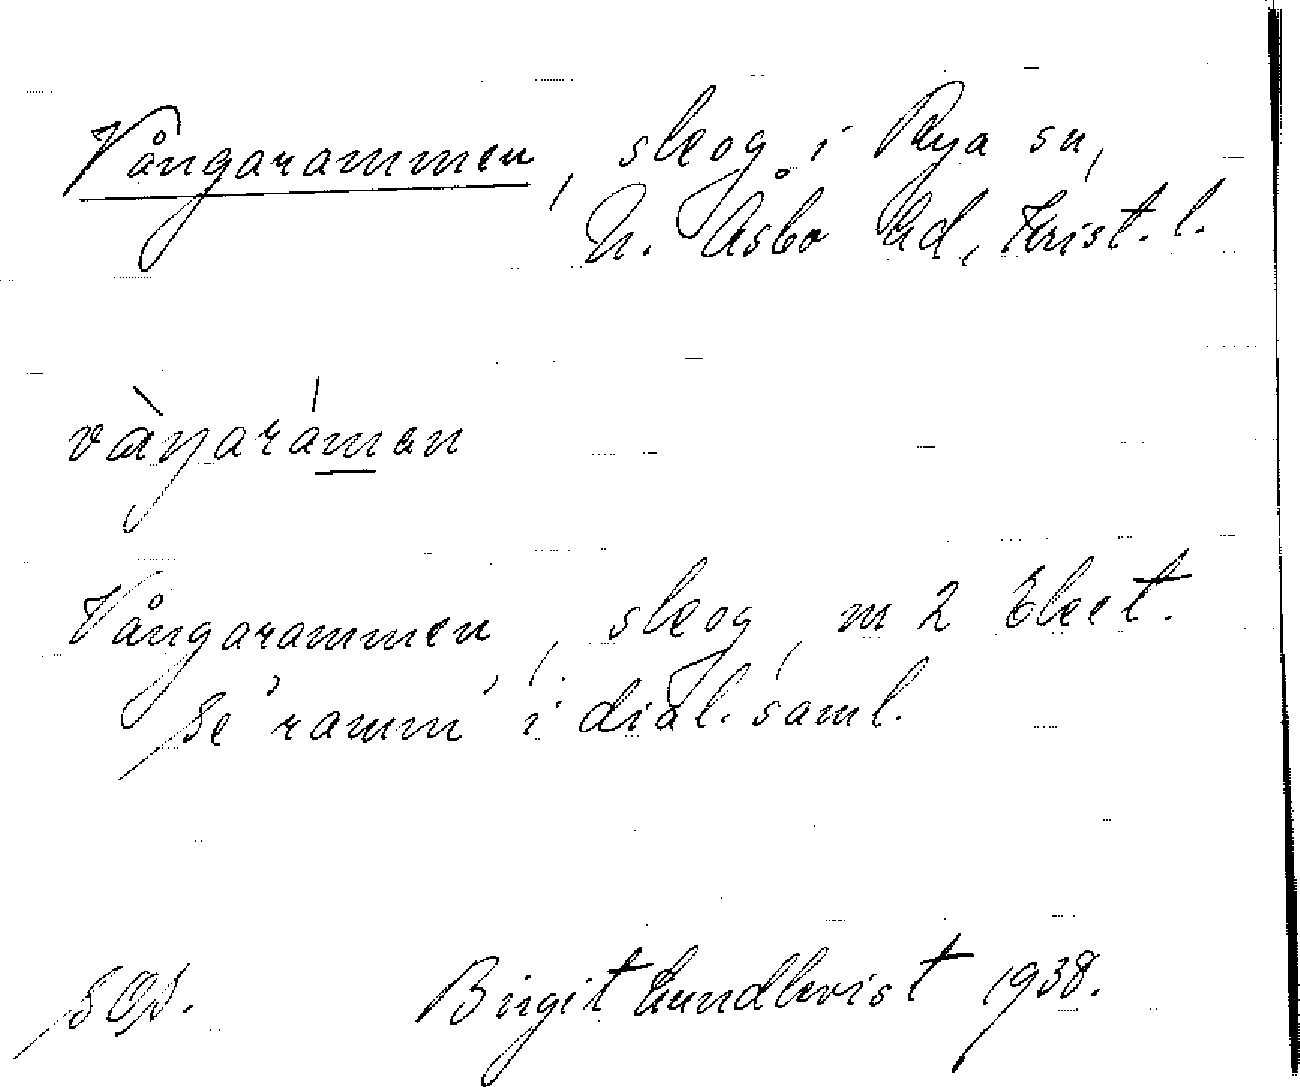 Vångarammen, skog i Rya sn,
N. Åsbo hd, Krist. l.
vàŋarámen
Vångarammen, skog, m 2 Ekl t.
Se 'ramm' i dial. saml.
SOS. Birgit Lundkvist 1938.